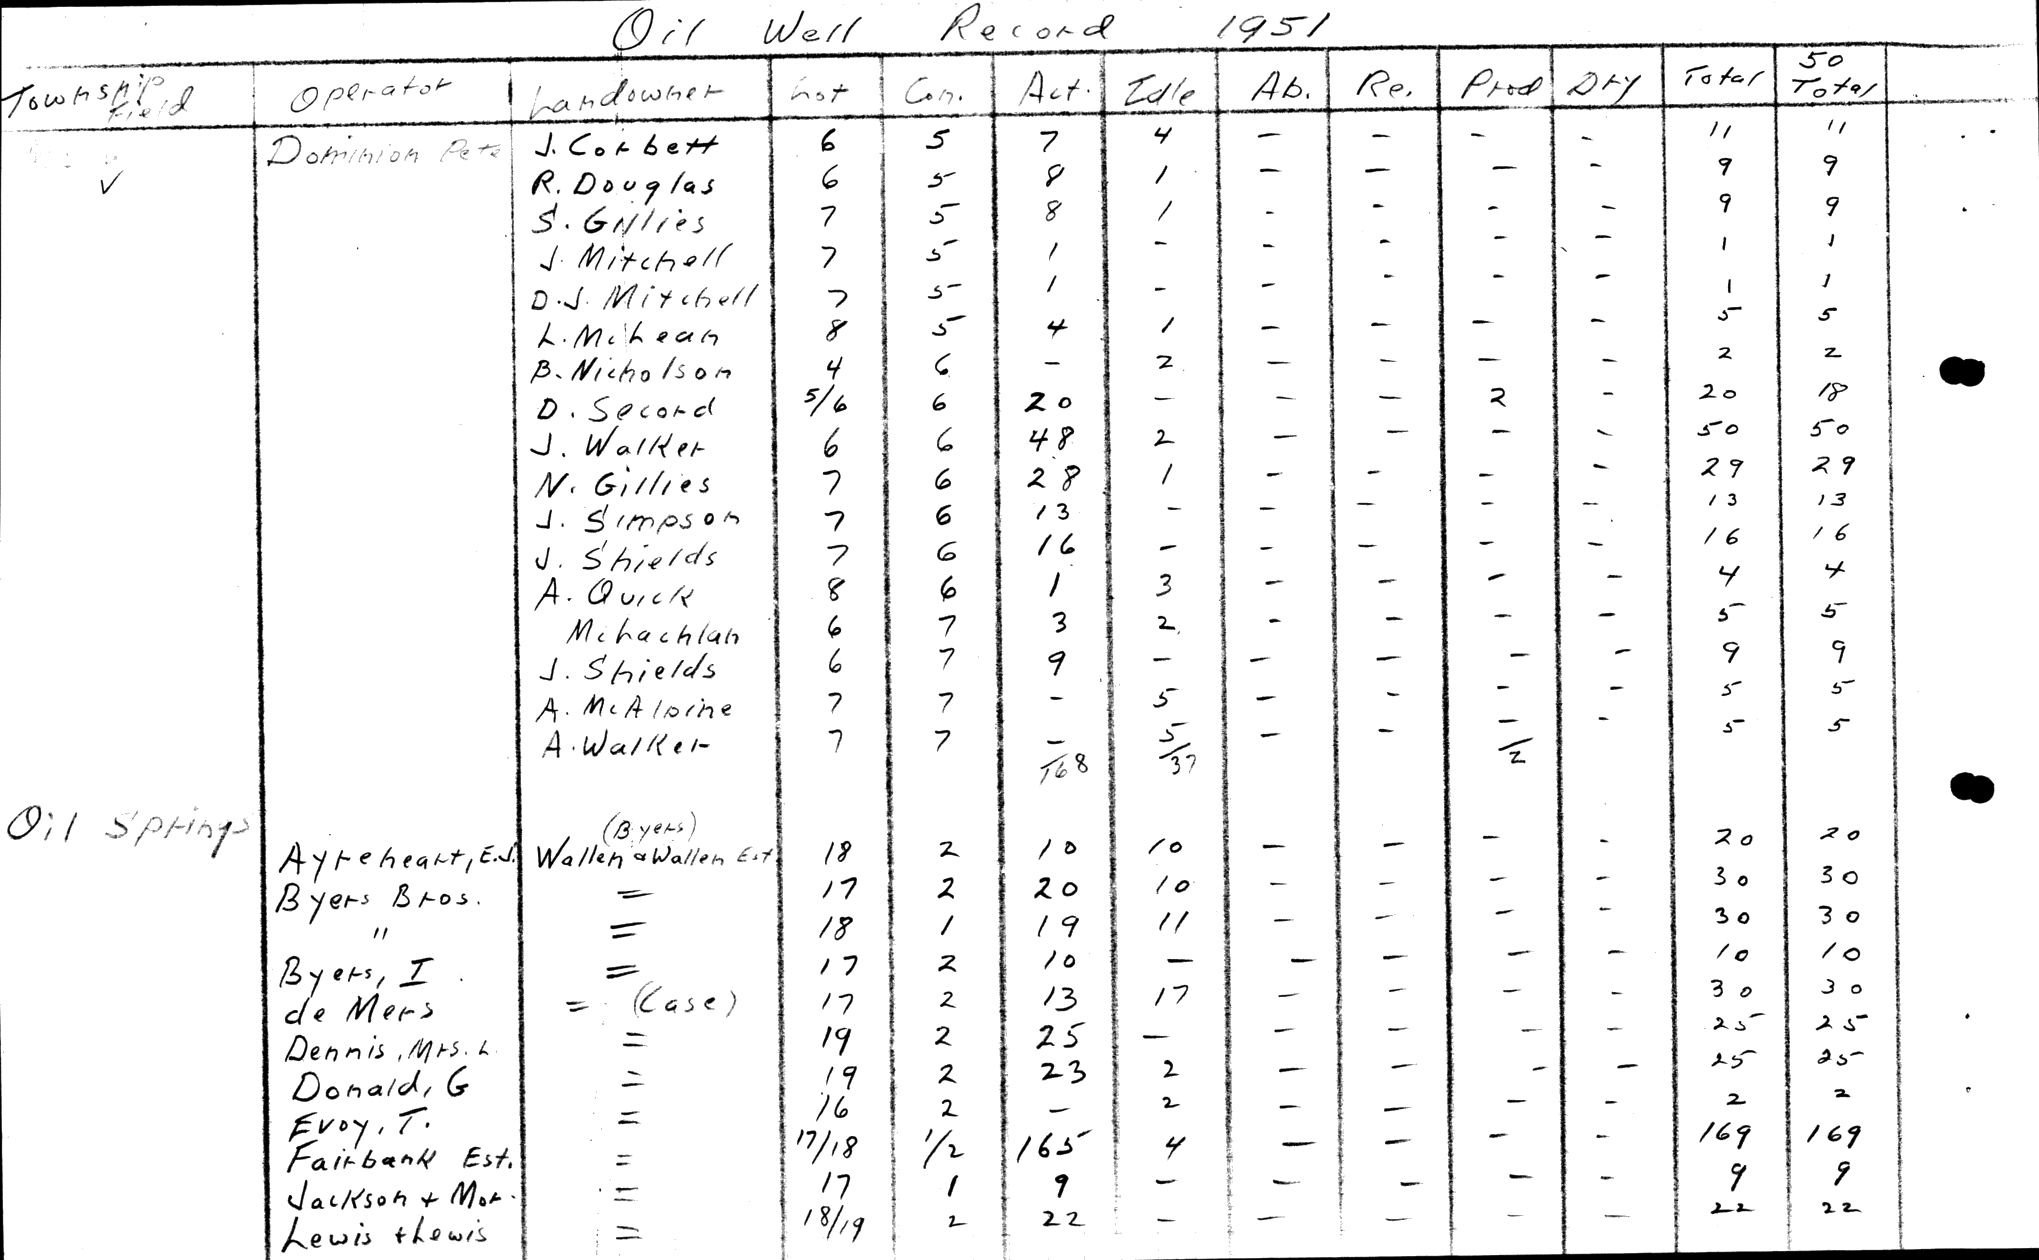 Oil Well Record 1951
Township Field Operator Landowner Lot Con. Act. Idle Ab. Re. Prod Dry Total 50 Total
Dominion Pete J. Corbett 6 5 7 4 – – – – 11 11
✓ R. Douglas 6 5 8 1 – – – – 9 9
S. Gillies 7 5 8 1 – – – – 9 9
J. Mitchell 7 5 1 – – – – – 1 1
D.J. Mitchell 7 5 1 – – – – – 1 1
L. McLean 8 5 4 1 – – – – 5 5
B. Nicholson 4 6 – 2 – – – – 2 2
D. Secord 5/6 6 20 – – – 2 – 20 18
J. Walker 6 6 48 2 – – – – 50 50
N. Gillies 7 6 28 1 – – – – 29 29
J. Simpson 7 6 13 – – – – – 13 13
J. Shields 7 6 16 – – – – – 16 16
A. Quick 8 6 1 3 – – – – 4 4
McLachlan 6 7 3 2 – – – – 5 5
J. Shields 6 7 9 – – – – – 9 9
A. McAlpine 7 7 – 5 – – – – 5 5
A. Walker 7 7 – 5 – – – – 5 5
168 37 2
Oil Springs
(Byers)
Ayreheart, E.J. Wallen & Wallen Est 18 2 10 10 – – – – 20 20
Byers Bros. = 17 2 20 10 – – – – 30 30
" = 18 1 19 11 – – – – 30 30
Byers, I = 17 2 10 – – – – – 10 10
de Mers = (Case) 17 2 13 17 – – – – 30 30
Dennis, Mrs. L. = 19 2 25 – – – – – 25 25
Donald, G = 19 2 23 2 – – – – 25 25
Evoy, T. = 16 2 – 2 – – – – 2 2
Fairbank Est. = 17/18 1/2 165 4 – – – – 169 169
Jackson + Mor. = 17 1 9 – – – – – 9 9
Lewis + Lewis = 18/19 2 22 – – – – – 22 22